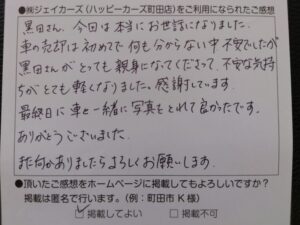 ●㈱ジェイカーズ(ハッピーカーズ町田店)をご利用になられたご感想
黒田さん、今回は本当にお世話になりました。
車の売却は初めてで何も分からない中不安でしたが
黒田さんがとっても親身になってくださって、不安な気持
ちがとても軽くなりました。感謝しています。
最終日に車と一緒に写真をとれて良かったです。
ありがとうございました。
また何かありましたらよろしくお願いします。
●頂いたご感想をホームページに掲載してもよろしいですか?
掲載は匿名で行います。(例:町田市 K 様)
□掲載してよい □掲載不可